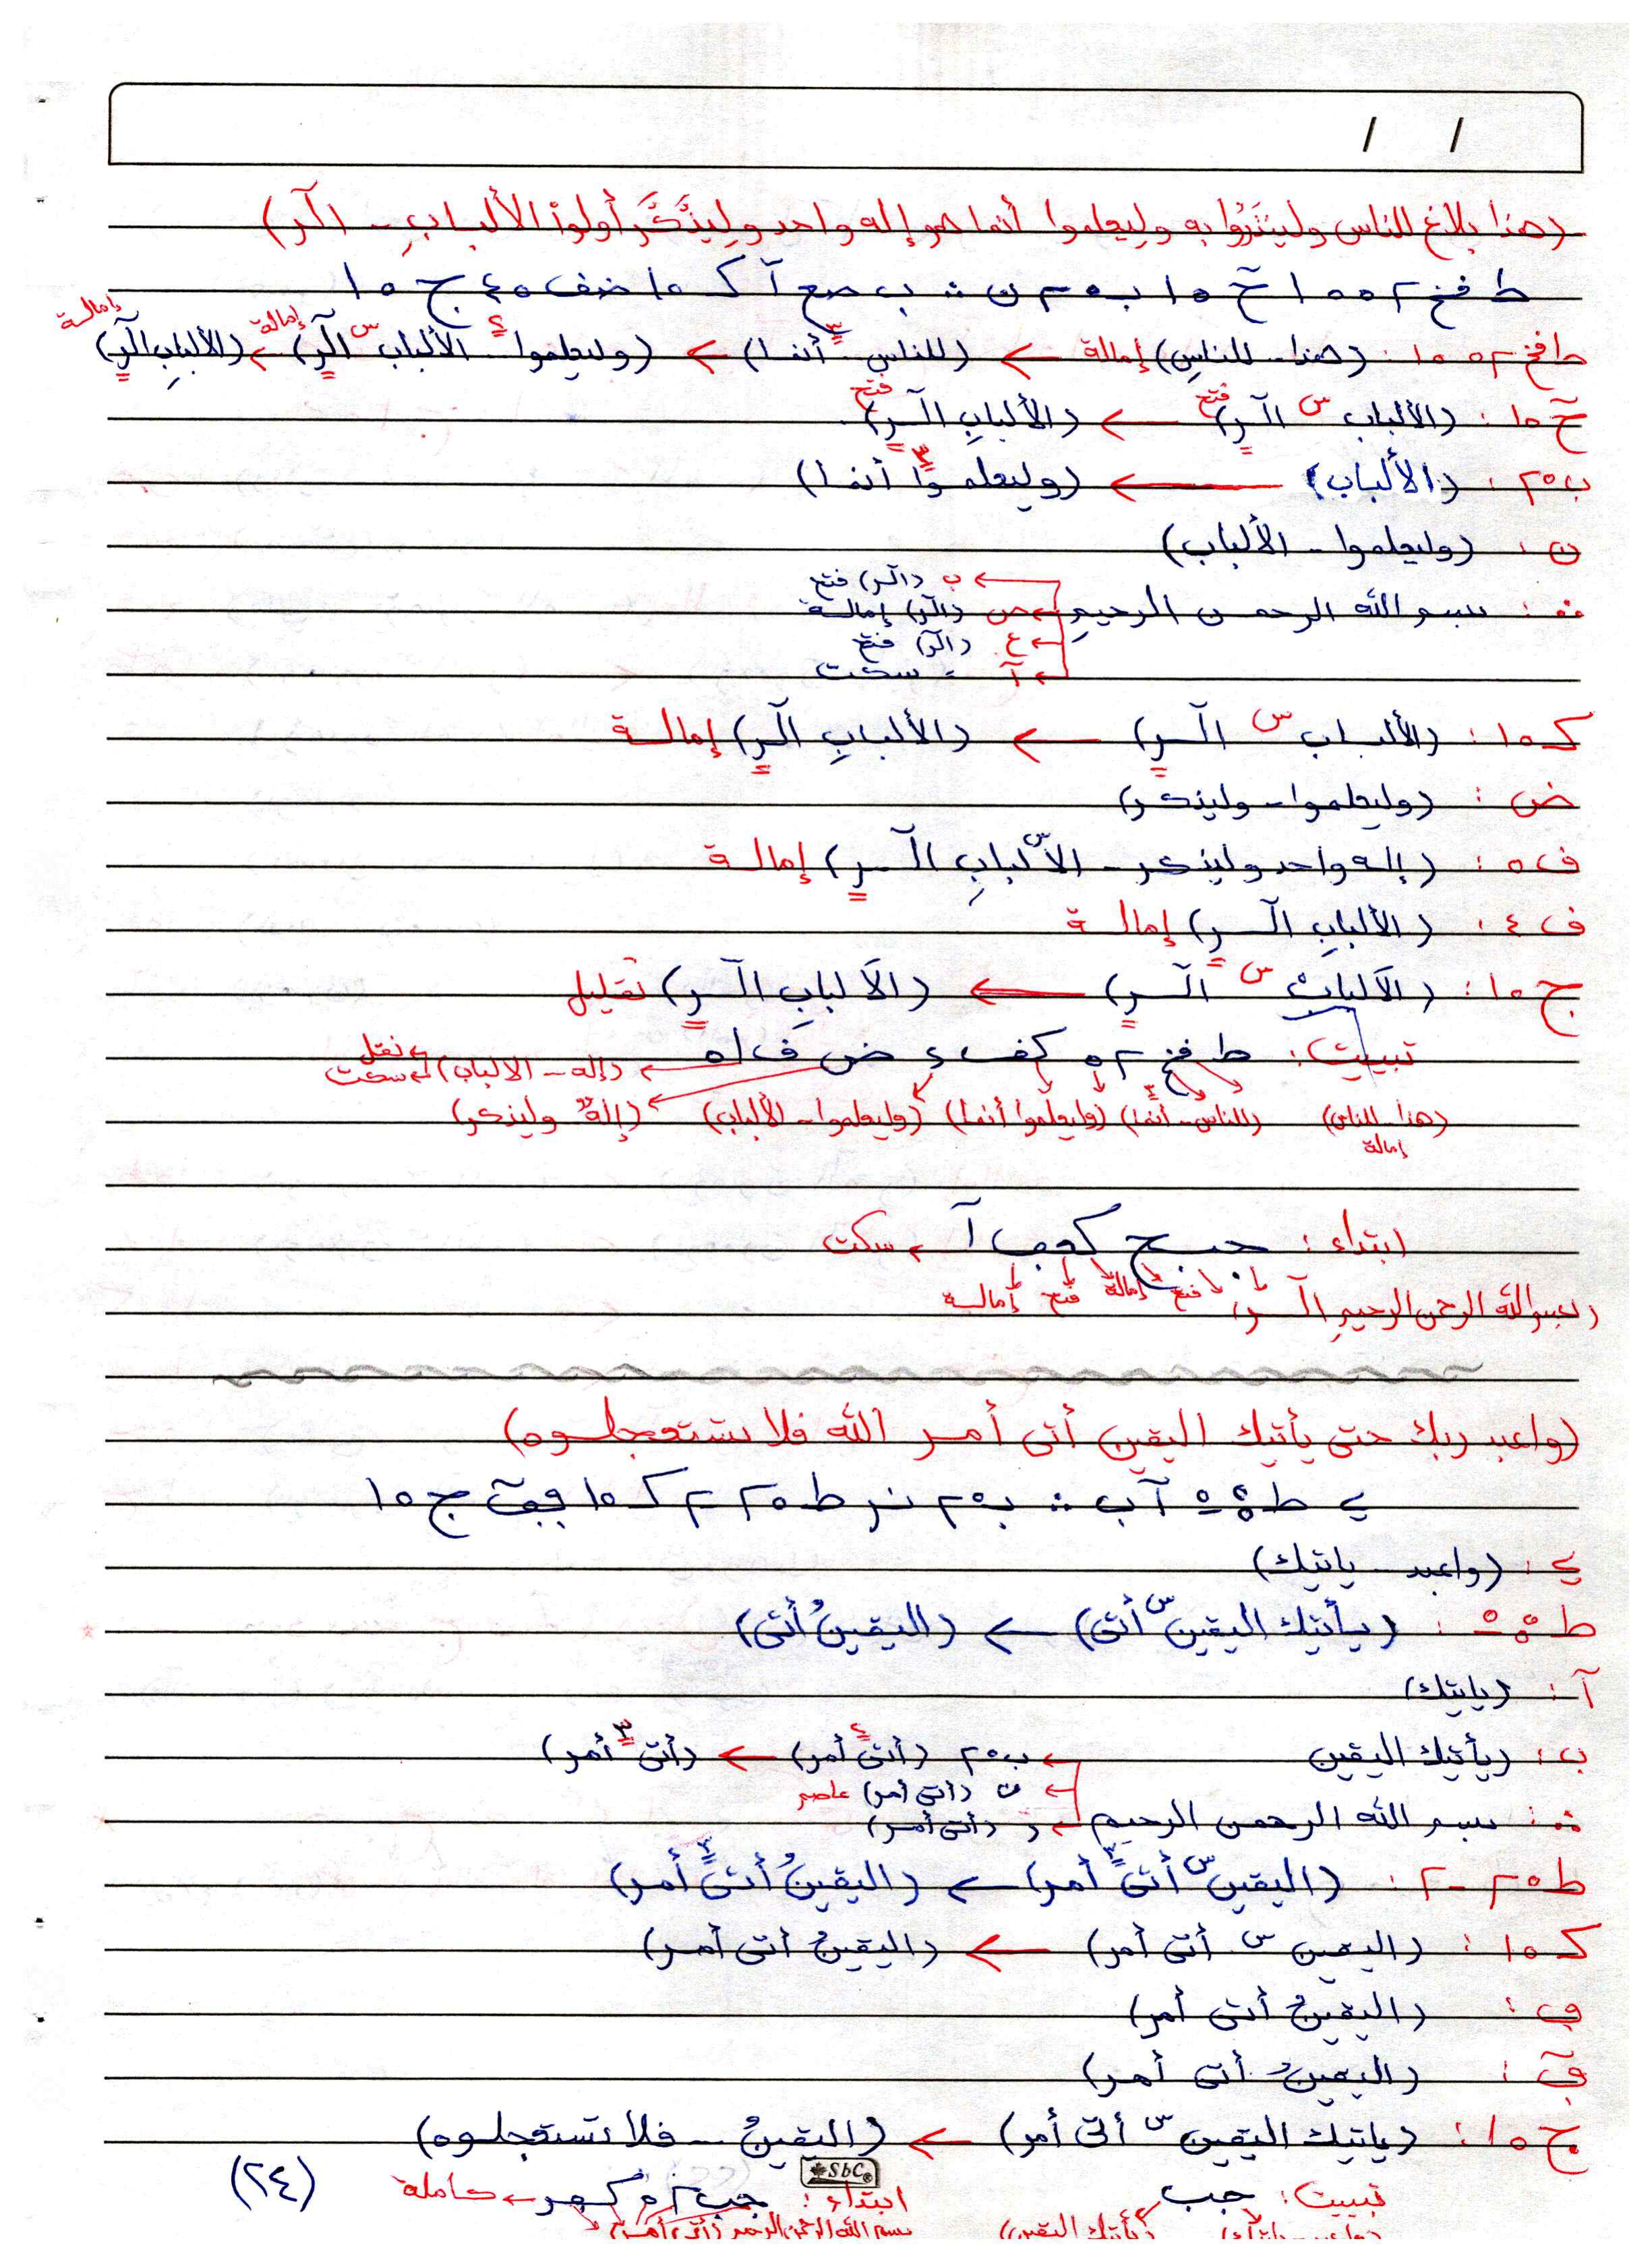 / /
(هذا بلاغ للناس ولينذروا به وليعلموا أنما هو إله واحد وليذَّكَّر أولوا الألبابِ - الٓر)
ط فخ ٢ ٥ ١ حٓ ١٥ ب ٢٥ ن ∴ ب صع آ ك ١٥ ضف ٤٥ ج ١٥
: (هذا - للناسِ) إمالة ← (للناس - أنما) ← (وليعلموا - الألباب س الٓر) إمالة ← (الألبابِ الٓر) إمالة
حٓ ١٥ : (الألباب س الٓر) فتح ← (الألبابِ الٓر) فتح
ب ٢٥ : (الألباب) ← (وليعلموا أنما)
ن : (وليعلموا - الألباب)
∴ : بسم الله الرحمن الرحيمِ ← ب (الٓر) فتح
← ص (الٓر) إمالة
← ع (الٓر) فتح
← آ = سكت
ك ١٥ : (الألباب س الٓر) ← (الألبابِ الٓر) إمالة
ض : (وليعلموا - وليذكر)
ف ٥ : (إله واحد وليذكر - الأس‍لبابِ الٓر) إمالة
ف ٤ : (الألبابِ الٓر) إمالة
ج ١٥ : (الَالباب س الٓر) ← (الَالبابِ الٓر) تقليل
تبييت : ط فخ ٢ ٥ كف ء ض ف ١٥ ← (إله - الالباب) ← نقل ← سكت
(هذا - للناس) إمالة (للناس - أنما) (وليعلموا أنما) (وليعلموا - الألباب) (إله وليذكر)
ابتداء : جبح كعب آ ← سكت
(بسم الله الرحمن الرحيمِ الٓر) فتح إمالة فتح إمالة
(واعبد ربك حتى يأتيك اليقين أتى أمر الله فلا تستعجلوه)
ي ط آ ب ∴ ب ٢٥ نر ط ٢٥ ٢ ك ١٥ ج ١٥
ي : (واعبد - ياتيك)
ط : (يأتيك اليقين س أتى) ← (اليقينُ أتى)
آ : (ياتيك)
ب : (يأتيك اليقين ← ب ٢٥ (أتى أمر) ← (أتى أمر)
← ن (أتى أمر) عاصم
∴ : بسم الله الرحمن الرحيم ← ر (أتى أمر)
ط ٢٥ - ٢ : (اليقين س أتى أمر) ← (اليقينُ أتى أمر)
ك ١٥ : (اليقين س أتى أمر) ← (اليقينُ أتى أمر)
ف : (اليقينُ أتى أمر)
فٓ : (اليقينُ أتى أمر)
ج ١٥ : (ياتيك اليقين س أتى أمر) ← (اليقينُ - فلا تستعجلوه)
تبييت : جب ابتداء : جب ← كاملة (٢٤)
(واعبد - ياتيك) (يأتيك اليقين) بسم الله الرحمن الرحيم (أتى أمر)
SbC